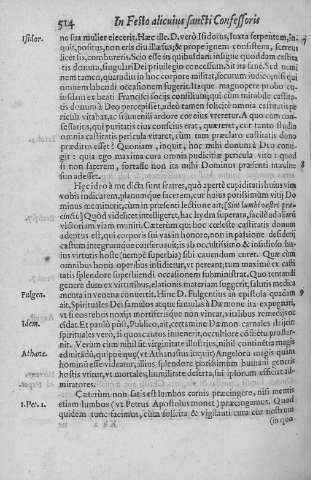 514 In Festo alicuius sancti Confessoris
Isidor. ne sua mulier eiecerit. Hæc ille. D. verò Isidorus, iuxta serpentem, in-
quit, positus, non eris diu illæsus; & propè ignem consistens, ferreus
licet sis, comburêris. Scio esse in quibusdam insigne quoddam castita
tis donum, singulari Dei privilegio concessum. Sit ita sanè. Sed num
nem tamen, quandiu in hoc corpore militat, securum iudico, nisi qui
omnem labendi occasionem fugerit. Itaque magnopere probo cu-
iusdam ex beati Francisci socijs consilium, qui cùm mirabile castita
tis donum à Deo percepisset, adeò tamen solicitè omnia castitatis pe
ricula vitabat, ac si iuvenili ardore correptus veretur. A quo cùm con-
fessarius, qui puritatis eius conscius erat, quæreret, cur tanto studio
omnia castitatis pericula vitaret, cùm tam præclaro castitatis dono
præditus esset? Quoniam, inquit, hoc mihi donum à Deo conti-
git: quia ego maxima cura omnia pudicitiæ pericula vito: quod
si non facerem, fortasse non ita mihi Dominus præsenti maximè
suo adesset.
Hęc ideò à me dicta sunt fratres, quò apertè cupiditatis huius vim
vobis indicarem, planumque facerem, cur huius potissimùm vitij Do
minus meminerit, cùm in præsenti lectione ait; [Sint lumbi vestri præ-
cincti.] Quòd videlicet intelligeret, hac lẹy dna superata, facilè ad aliarũ
victoriam viam muniri. Cæterùm qui hoc cœleste castitatis donum
adeptus est, qui corporis sui vas in honore, non in passione desiderij
castum integrumque conservavit; is ab occultissimo & insidioso hu-
ius virtutis hoste (nempè superbia) sibi cavendum curet. Quæ cùm
omnibus bonis operibus insidietur, vt pereant, tum maximè ex casti
tatis splendore superbiendi occasionem subministrat. Quo tentandi
genere dum ex virtutibus, elationis materiam suggerit, salutis medica
Fulgen. menta in venena convertit. Hinc D. Fulgentius in epistola quadam
ait, Spirituales Dei famulos atque famulas à Dæmone ita expugnari,
vt si eos rebus noxijs mortiferisque non vincat, vitalibus remedijs oc-
Idem. cidat. Et paulò pòst, Publico, ait, certamine Dæmon carnales dejicit
spirituales verò, si quos castos invenerit, occultiore cõflictu proster-
nit. Verùm cùm nihil sit virginitate illustrius, nihil continẽtia magis
Athana. admirãdũ, quippè quę (vt Athanasius inquit) Angelorũ magis quàm
hominũ esse videatur, illius splendore piorissimum humani generis
hostis vtitur, vt mortales, humilitate deserta, sui ipsorum efficiat ad-
miratores.
Cæterùm non satis est lumbos carnis præcingere, nisi mentis
1. Pet. 1. etiam lumbos (vt Petrus Apostolus monet) præcingamus. Quod
quidem tunc facimus, cùm solicita & vigilanti cura cor nostrum
(in quo